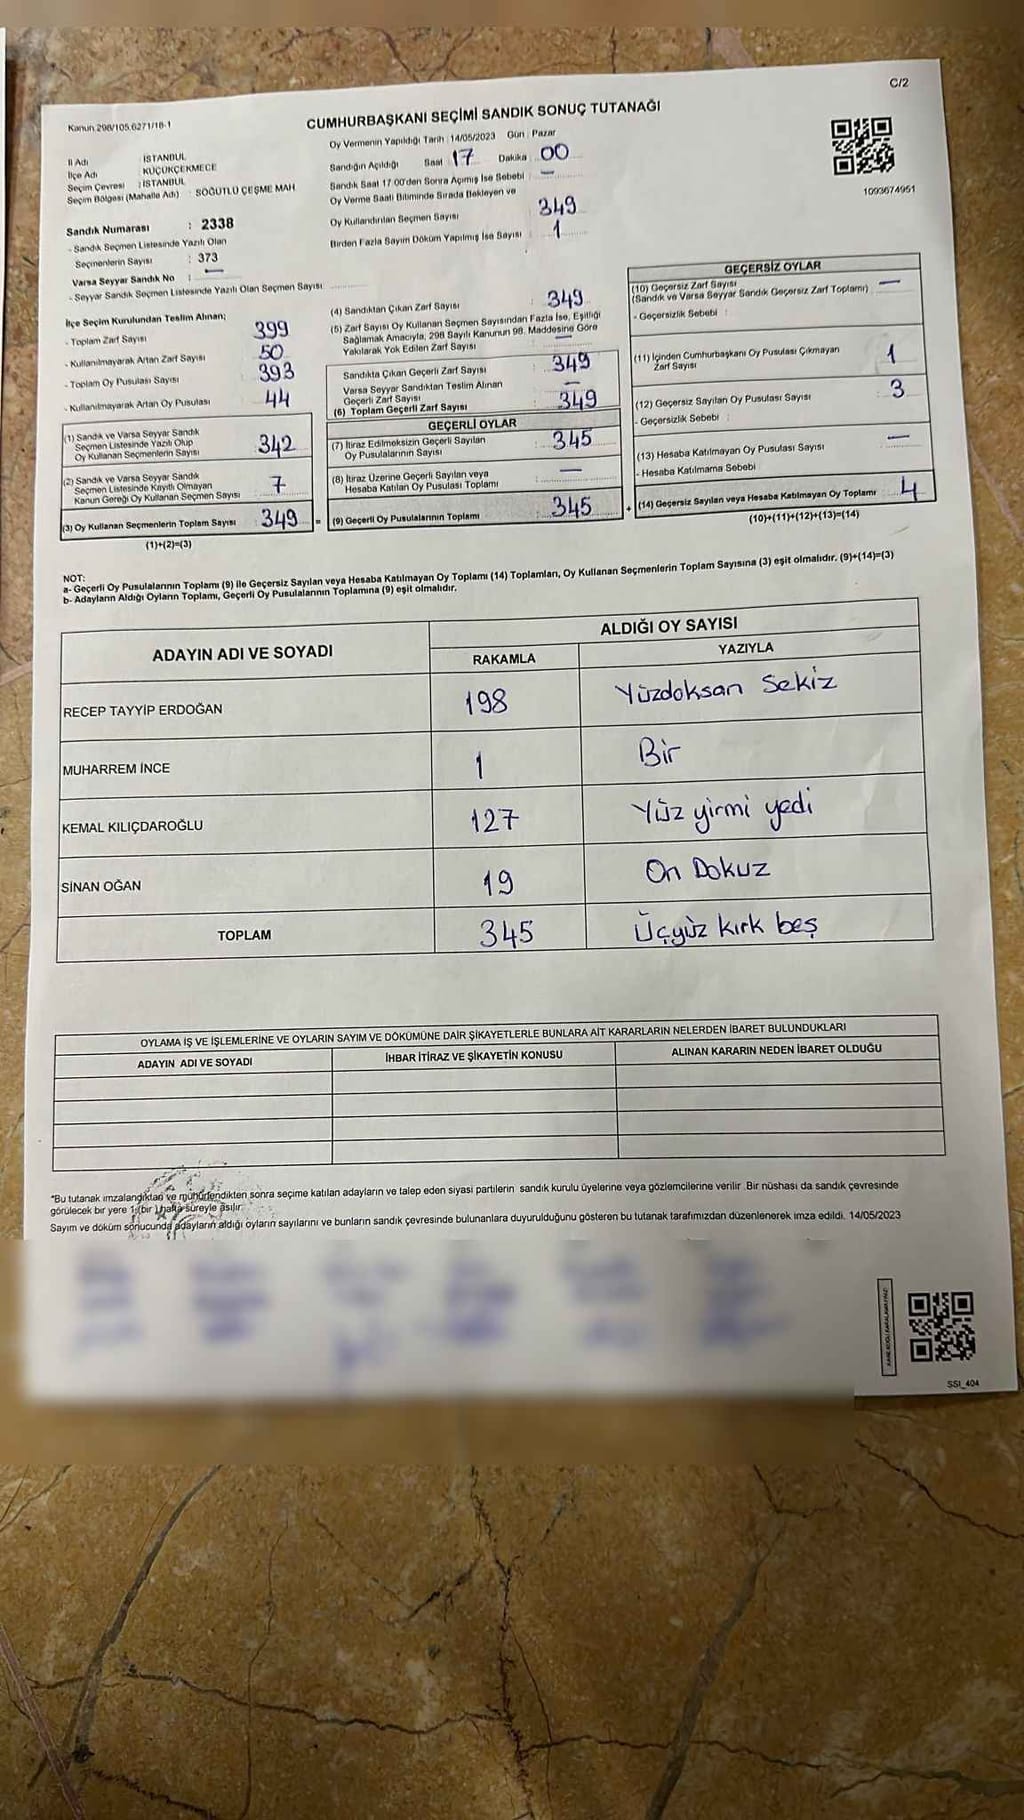 C/2
Kanun 298/105.6271/18-1
CUMHURBAŞKANI SEÇİMİ SANDIK SONUÇ TUTANAĞI
İl Adı : İSTANBUL
İlçe Adı : KÜÇÜKÇEKMECE
Seçim Çevresi : İSTANBUL
Seçim Bölgesi (Mahalle Adı) : SÖĞÜTLÜ ÇEŞME MAH
Oy Vermenin Yapıldığı Tarih : 14/05/2023 Gün : Pazar
Sandığın Açıldığı Saat 17 Dakika 00
Sandık Saat 17 00'den Sonra Açımış İse Sebebi : —
Oy Verme Saati Bitiminde Sırada Bekleyen ve
Oy Kullandırılan Seçmen Sayısı 349
Birden Fazla Sayım Döküm Yapılmış İse Sayısı : 1
1093674951
Sandık Numarası : 2338
- Sandık Seçmen Listesinde Yazılı Olan
Seçmenlerin Sayısı : 373
Varsa Seyyar Sandık No : —
- Seyyar Sandık Seçmen Listesinde Yazılı Olan Seçmen Sayısı
İlçe Seçim Kurulundan Teslim Alınan;
- Toplam Zarf Sayısı 399
- Kullanılmayarak Artan Zarf Sayısı 50
- Toplam Oy Pusulası Sayısı 393
- Kullanılmayarak Artan Oy Pusulası 44
(1) Sandık ve Varsa Seyyar Sandık
Seçmen Listesinde Yazılı Olup
Oy Kullanan Seçmenlerin Sayısı 342
(2) Sandık ve Varsa Seyyar Sandık
Seçmen Listesinde Kayıtlı Olmayan
Kanun Gereği Oy Kullanan Seçmen Sayısı 7
(3) Oy Kullanan Seçmenlerin Toplam Sayısı 349 =
(1)+(2)=(3)
(4) Sandıktan Çıkan Zarf Sayısı : 349
(5) Zarf Sayısı Oy Kullanan Seçmen Sayısından Fazla İse, Eşitliği
Sağlamak Amacıyla, 298 Sayılı Kanunun 98. Maddesine Göre
Yakılarak Yok Edilen Zarf Sayısı : —
Sandıkta Çıkan Geçerli Zarf Sayısı 349
Varsa Seyyar Sandıktan Teslim Alınan
Geçerli Zarf Sayısı —
(6) Toplam Geçerli Zarf Sayısı 349
GEÇERLİ OYLAR
(7) İtiraz Edilmeksizin Geçerli Sayılan
Oy Pusulalarının Sayısı 345
(8) İtiraz Üzerine Geçerli Sayılan veya
Hesaba Katılan Oy Pusulası Toplamı —
(9) Geçerli Oy Pusulalarının Toplamı 345 +
GEÇERSİZ OYLAR
(10) Geçersiz Zarf Sayısı —
(Sandık ve Varsa Seyyar Sandık Geçersiz Zarf Toplamı)
- Geçersizlik Sebebi :
(11) İçinden Cumhurbaşkanı Oy Pusulası Çıkmayan
Zarf Sayısı 1
(12) Geçersiz Sayılan Oy Pusulası Sayısı 3
- Geçersizlik Sebebi :
(13) Hesaba Katılmayan Oy Pusulası Sayısı —
- Hesaba Katılmama Sebebi
(14) Geçersiz Sayılan veya Hesaba Katılmayan Oy Toplamı 4
(10)+(11)+(12)+(13)=(14)
NOT:
a- Geçerli Oy Pusulalarının Toplamı (9) ile Geçersiz Sayılan veya Hesaba Katılmayan Oy Toplamı (14) Toplamları, Oy Kullanan Seçmenlerin Toplam Sayısına (3) eşit olmalıdır. (9)+(14)=(3)
b- Adayların Aldığı Oyların Toplamı, Geçerli Oy Pusulalarının Toplamına (9) eşit olmalıdır.
ADAYIN ADI VE SOYADI
ALDIĞI OY SAYISI
RAKAMLA YAZIYLA
RECEP TAYYİP ERDOĞAN 198 Yüzdoksan Sekiz
MUHARREM İNCE 1 Bir
KEMAL KILIÇDAROĞLU 127 Yüz yirmi yedi
SİNAN OĞAN 19 On Dokuz
TOPLAM 345 Üçyüz kırk beş
OYLAMA İŞ VE İŞLEMLERİNE VE OYLARIN SAYIM VE DÖKÜMÜNE DAİR ŞİKAYETLERLE BUNLARA AİT KARARLARIN NELERDEN İBARET BULUNDUKLARI
ADAYIN ADI VE SOYADI İHBAR İTİRAZ VE ŞİKAYETİN KONUSU ALINAN KARARIN NEDEN İBARET OLDUĞU
*Bu tutanak imzalandıktan ve mühürlendikten sonra seçime katılan adayların ve talep eden siyasi partilerin sandık kurulu üyelerine veya gözlemcilerine verilir Bir nüshası da sandık çevresinde
görülecek bir yere 1 (bir) hafta süreyle asılır
Sayım ve döküm sonucunda adayların aldığı oyların sayılarını ve bunların sandık çevresinde bulunanlara duyurulduğunu gösteren bu tutanak tarafımızdan düzenlenerek imza edildi. 14/05/2023
SSI_404